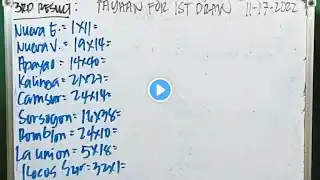 3RD RESULT: TAYAAN FOR 1ST DRAW 11-17-2022
Nueva E. = 1X11=
Nueva V. = 19X14=
Apayao = 14X40=
Kalinga = 21X27=
Camsur = 24X14=
Sorsogon = 16X38=
Romblon = 24X10=
La union = 5X18=
Ilocos Sur = 32X1=